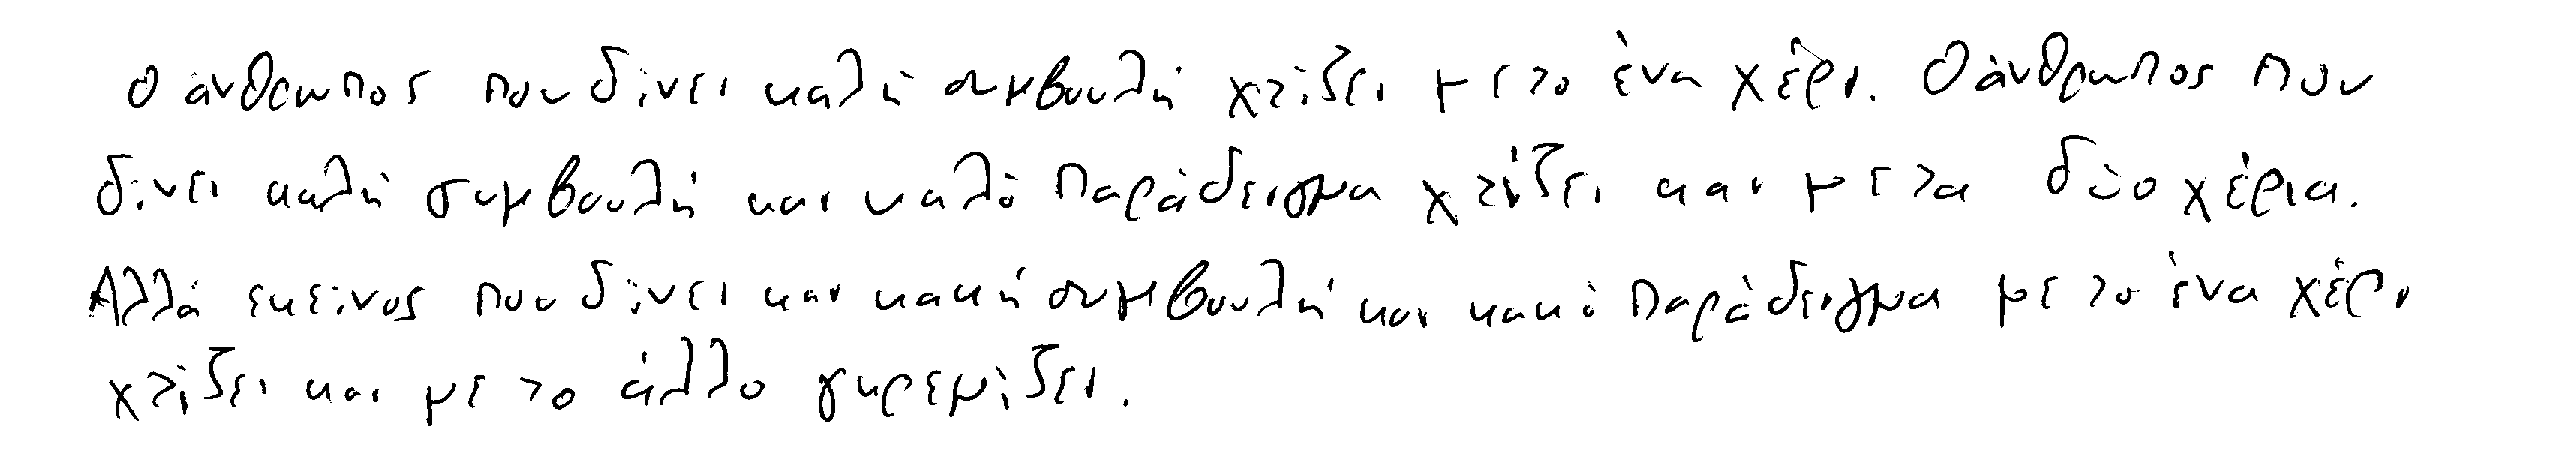 Ο άνθρωπος που δίνει καλή συμβουλή χτίζει με το ένα χέρι. Ο άνθρωπος που
δίνει καλή συμβουλή και καλό παράδειγμα χτίζει και με τα δύο χέρια.
Αλλά εκείνος που δίνει και κακή συμβουλή και κακό παράδειγμα με το ένα χέρι
χτίζει και με το άλλο γκρεμίζει.